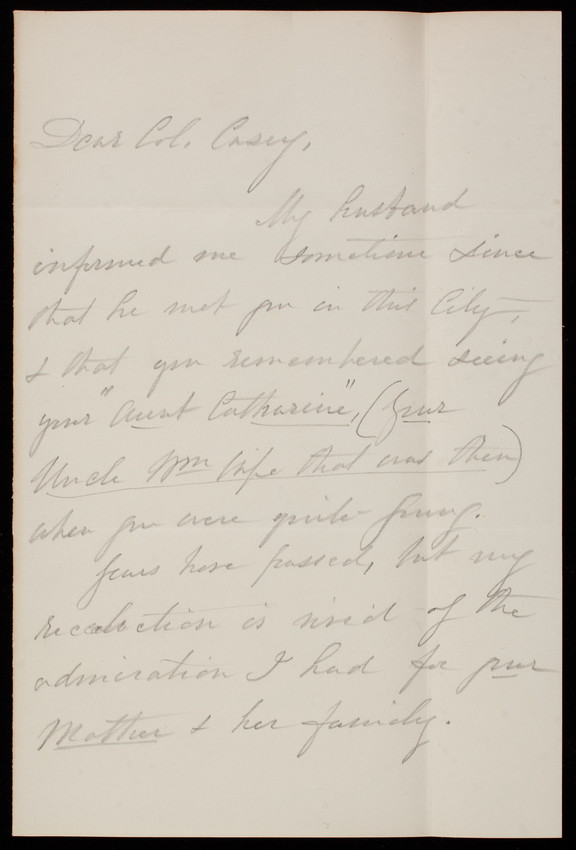 Dear Col. Casey,
My husband
informed me sometime since
that he met you in this City,
& that you remembered seeing
your "Aunt Catharine", (your
Uncle Wm wife that was then)
when you were quite young.
Years have passed, but my
recolection is vivid of the
admiration I had for your
Mother & her family.